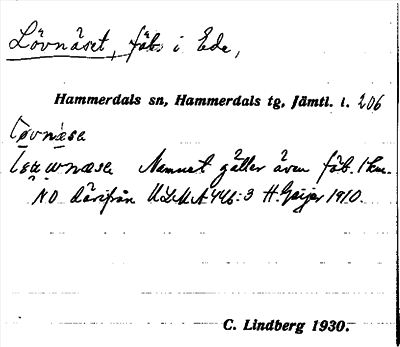 Lövnäset, fäb. i Ede,
Hammerdals sn, Hammerdals tg, Jämtl. l. 206
Løvnæsa
Namnet gäller även fäb. 1 km.
NO därifrån ULMA 446:3 H. Geijer 1910.
C. Lindberg 1930.